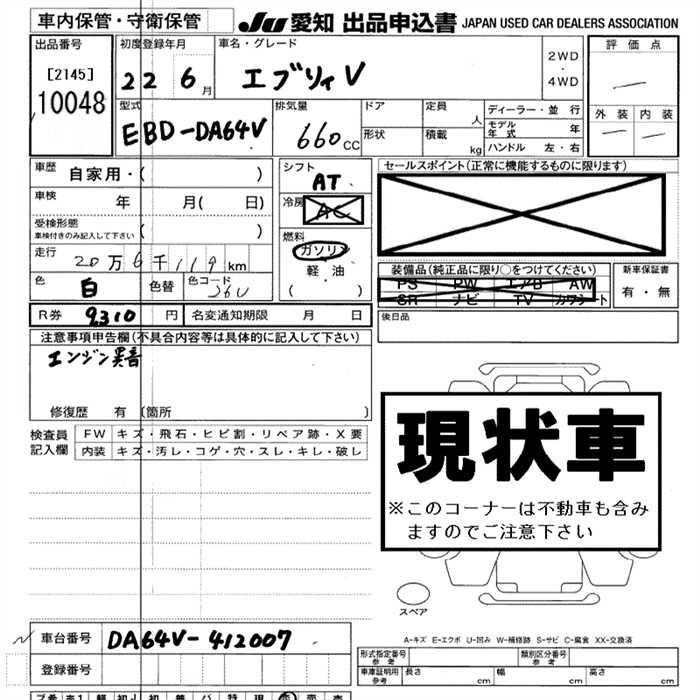 車内保管・守衛保管
JU 愛知 出品申込書 JAPAN USED CAR DEALERS ASSOCIATION
出品番号
[2145]
10048
初度登録年月
22 6月
車名・グレード
エブリィV
2WD
・
4WD
評価点
外装 内装
型式
EBD-DA64V
排気量
660cc
ドア
形状
定員 人
積載 kg
ディーラー・並行
モデル年式 年
ハンドル 左・右
車歴 自家用・( )
車検 年 月( 日)
受検形態
車検付きのみ記入して下さい ( )
走行 20万6千119km
色 白 色替 色コード 26U
シフト
AT
冷房
AC
燃料
ガソリン
軽油
( )
セールスポイント(正常に機能するものに限ります)
装備品(純正品に限り○をつけてください)
PS PW エアB AW
SR ナビ TV カワシート
新車保証書
有・無
後日品
R券 9310円 名変通知期限 月 日
注意事項申告欄(不具合内容等は具体的に記入して下さい)
エンジン異音
修復歴 有 〔箇所 〕
検査員記入欄
FW キズ・飛石・ヒビ割・リペア跡・X要
内装 キズ・汚レ・コゲ・穴・スレ・キレ・破レ
現状車
※このコーナーは不動車も含み
ますのでご注意下さい
スペア
A-キズ E-エクボ U-凹み W-補修跡 S-サビ C-腐食 XX-交換済
車台番号 DA64V-412007
登録番号
形式指定番号 参考
類別区分番号 参考
車庫証明用 参考 長さ cm 幅 cm 高さ cm